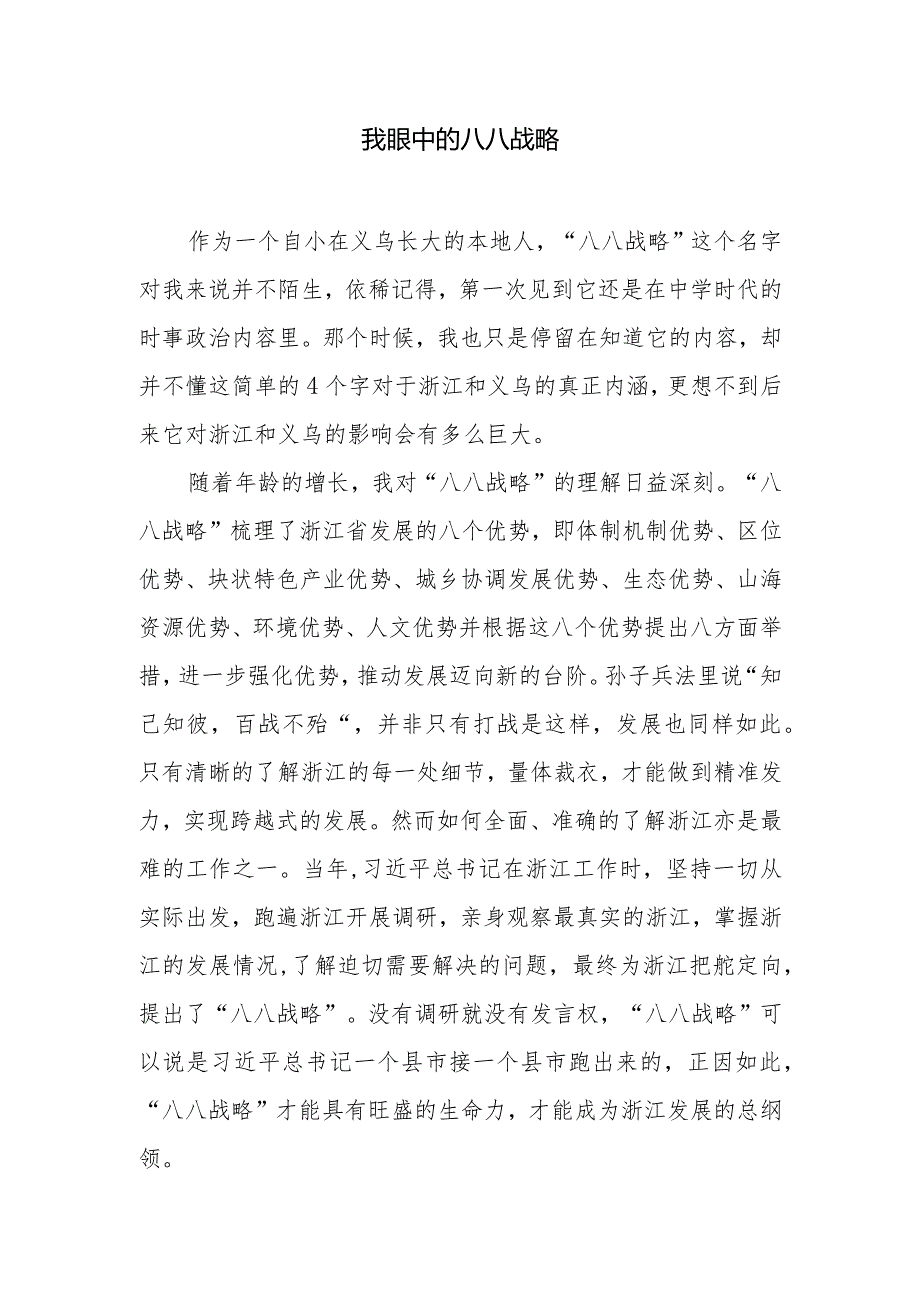 我眼中的八八战略
作为一个自小在义乌长大的本地人，“八八战略”这个名字
对我来说并不陌生，依稀记得，第一次见到它还是在中学时代的
时事政治内容里。那个时候，我也只是停留在知道它的内容，却
并不懂这简单的4个字对于浙江和义乌的真正内涵，更想不到后
来它对浙江和义乌的影响会有多么巨大。
随着年龄的增长，我对“八八战略”的理解日益深刻。“八
八战略”梳理了浙江省发展的八个优势，即体制机制优势、区位
优势、块状特色产业优势、城乡协调发展优势、生态优势、山海
资源优势、环境优势、人文优势并根据这八个优势提出八方面举
措，进一步强化优势，推动发展迈向新的台阶。孙子兵法里说“知
己知彼，百战不殆“，并非只有打战是这样，发展也同样如此。
只有清晰的了解浙江的每一处细节，量体裁衣，才能做到精准发
力，实现跨越式的发展。然而如何全面、准确的了解浙江亦是最
难的工作之一。当年,习近平总书记在浙江工作时，坚持一切从
实际出发，跑遍浙江开展调研，亲身观察最真实的浙江，掌握浙
江的发展情况,了解迫切需要解决的问题，最终为浙江把舵定向，
提出了“八八战略”。没有调研就没有发言权，“八八战略”可
以说是习近平总书记一个县市接一个县市跑出来的，正因如此，
“八八战略”才能具有旺盛的生命力，才能成为浙江发展的总纲
领。